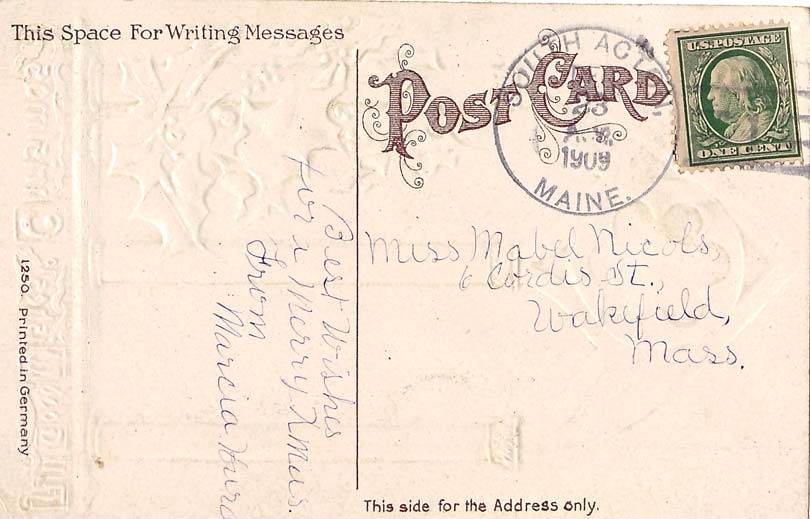 This Space For Writing Messages
POST CARD
SOUTH ACTON,
23
A.M.
1909
MAINE.
U.S. POSTAGE
ONE CENT
Best Wishes
for a Merry Xmas.
From
Marcia Hurd
Miss Mabel Nicols,
6 Cordis St.,
Wakefield,
Mass.
1250. Printed in Germany
This side for the Address only.